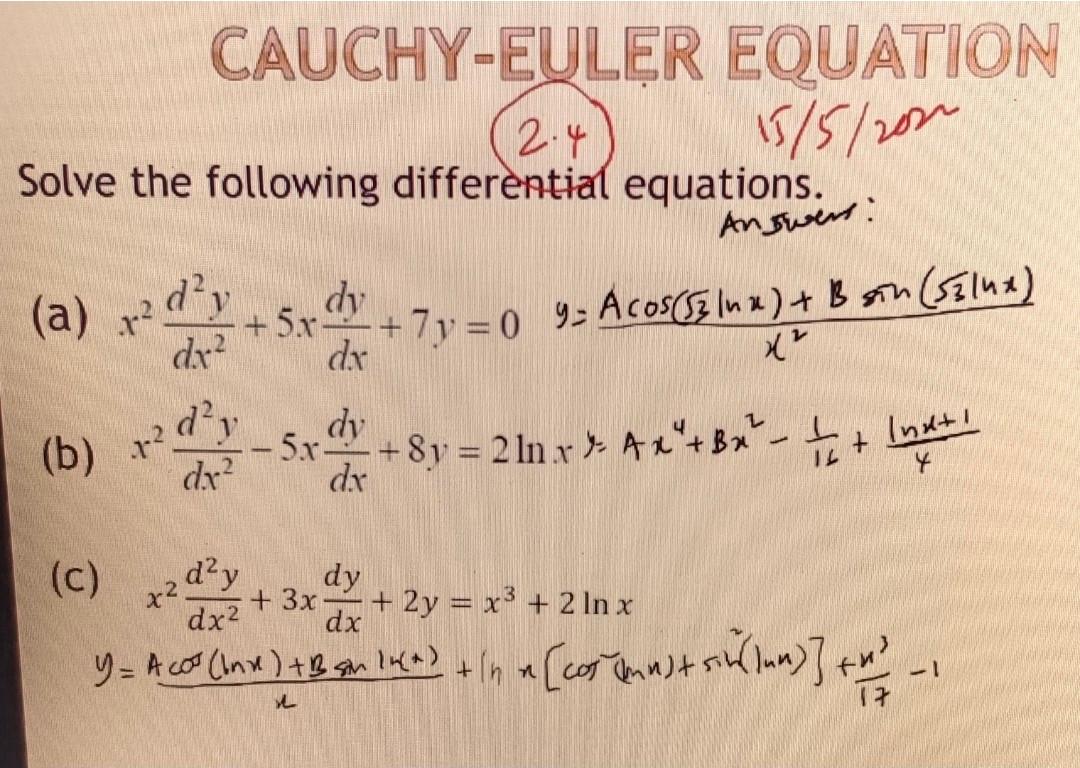 CAUCHY-EULER EQUATION
2.4 15/5/202
Solve the following differential equations.
Answers:
(a) x² d²y/dx² + 5x dy/dx + 7y = 0 y = (A cos(√3 ln x) + B sin(√3 ln x))/x²
(b) x² d²y/dx² - 5x dy/dx + 8y = 2 ln x y = Ax⁴ + Bx² - 1/16 + (ln x + 1)/4
(c) x² d²y/dx² + 3x dy/dx + 2y = x³ + 2 ln x
y = (A cos(ln x) + B sin ln(x))/x + ln x [cos²(ln x) + sin²(ln x)] + x³/17 - 1